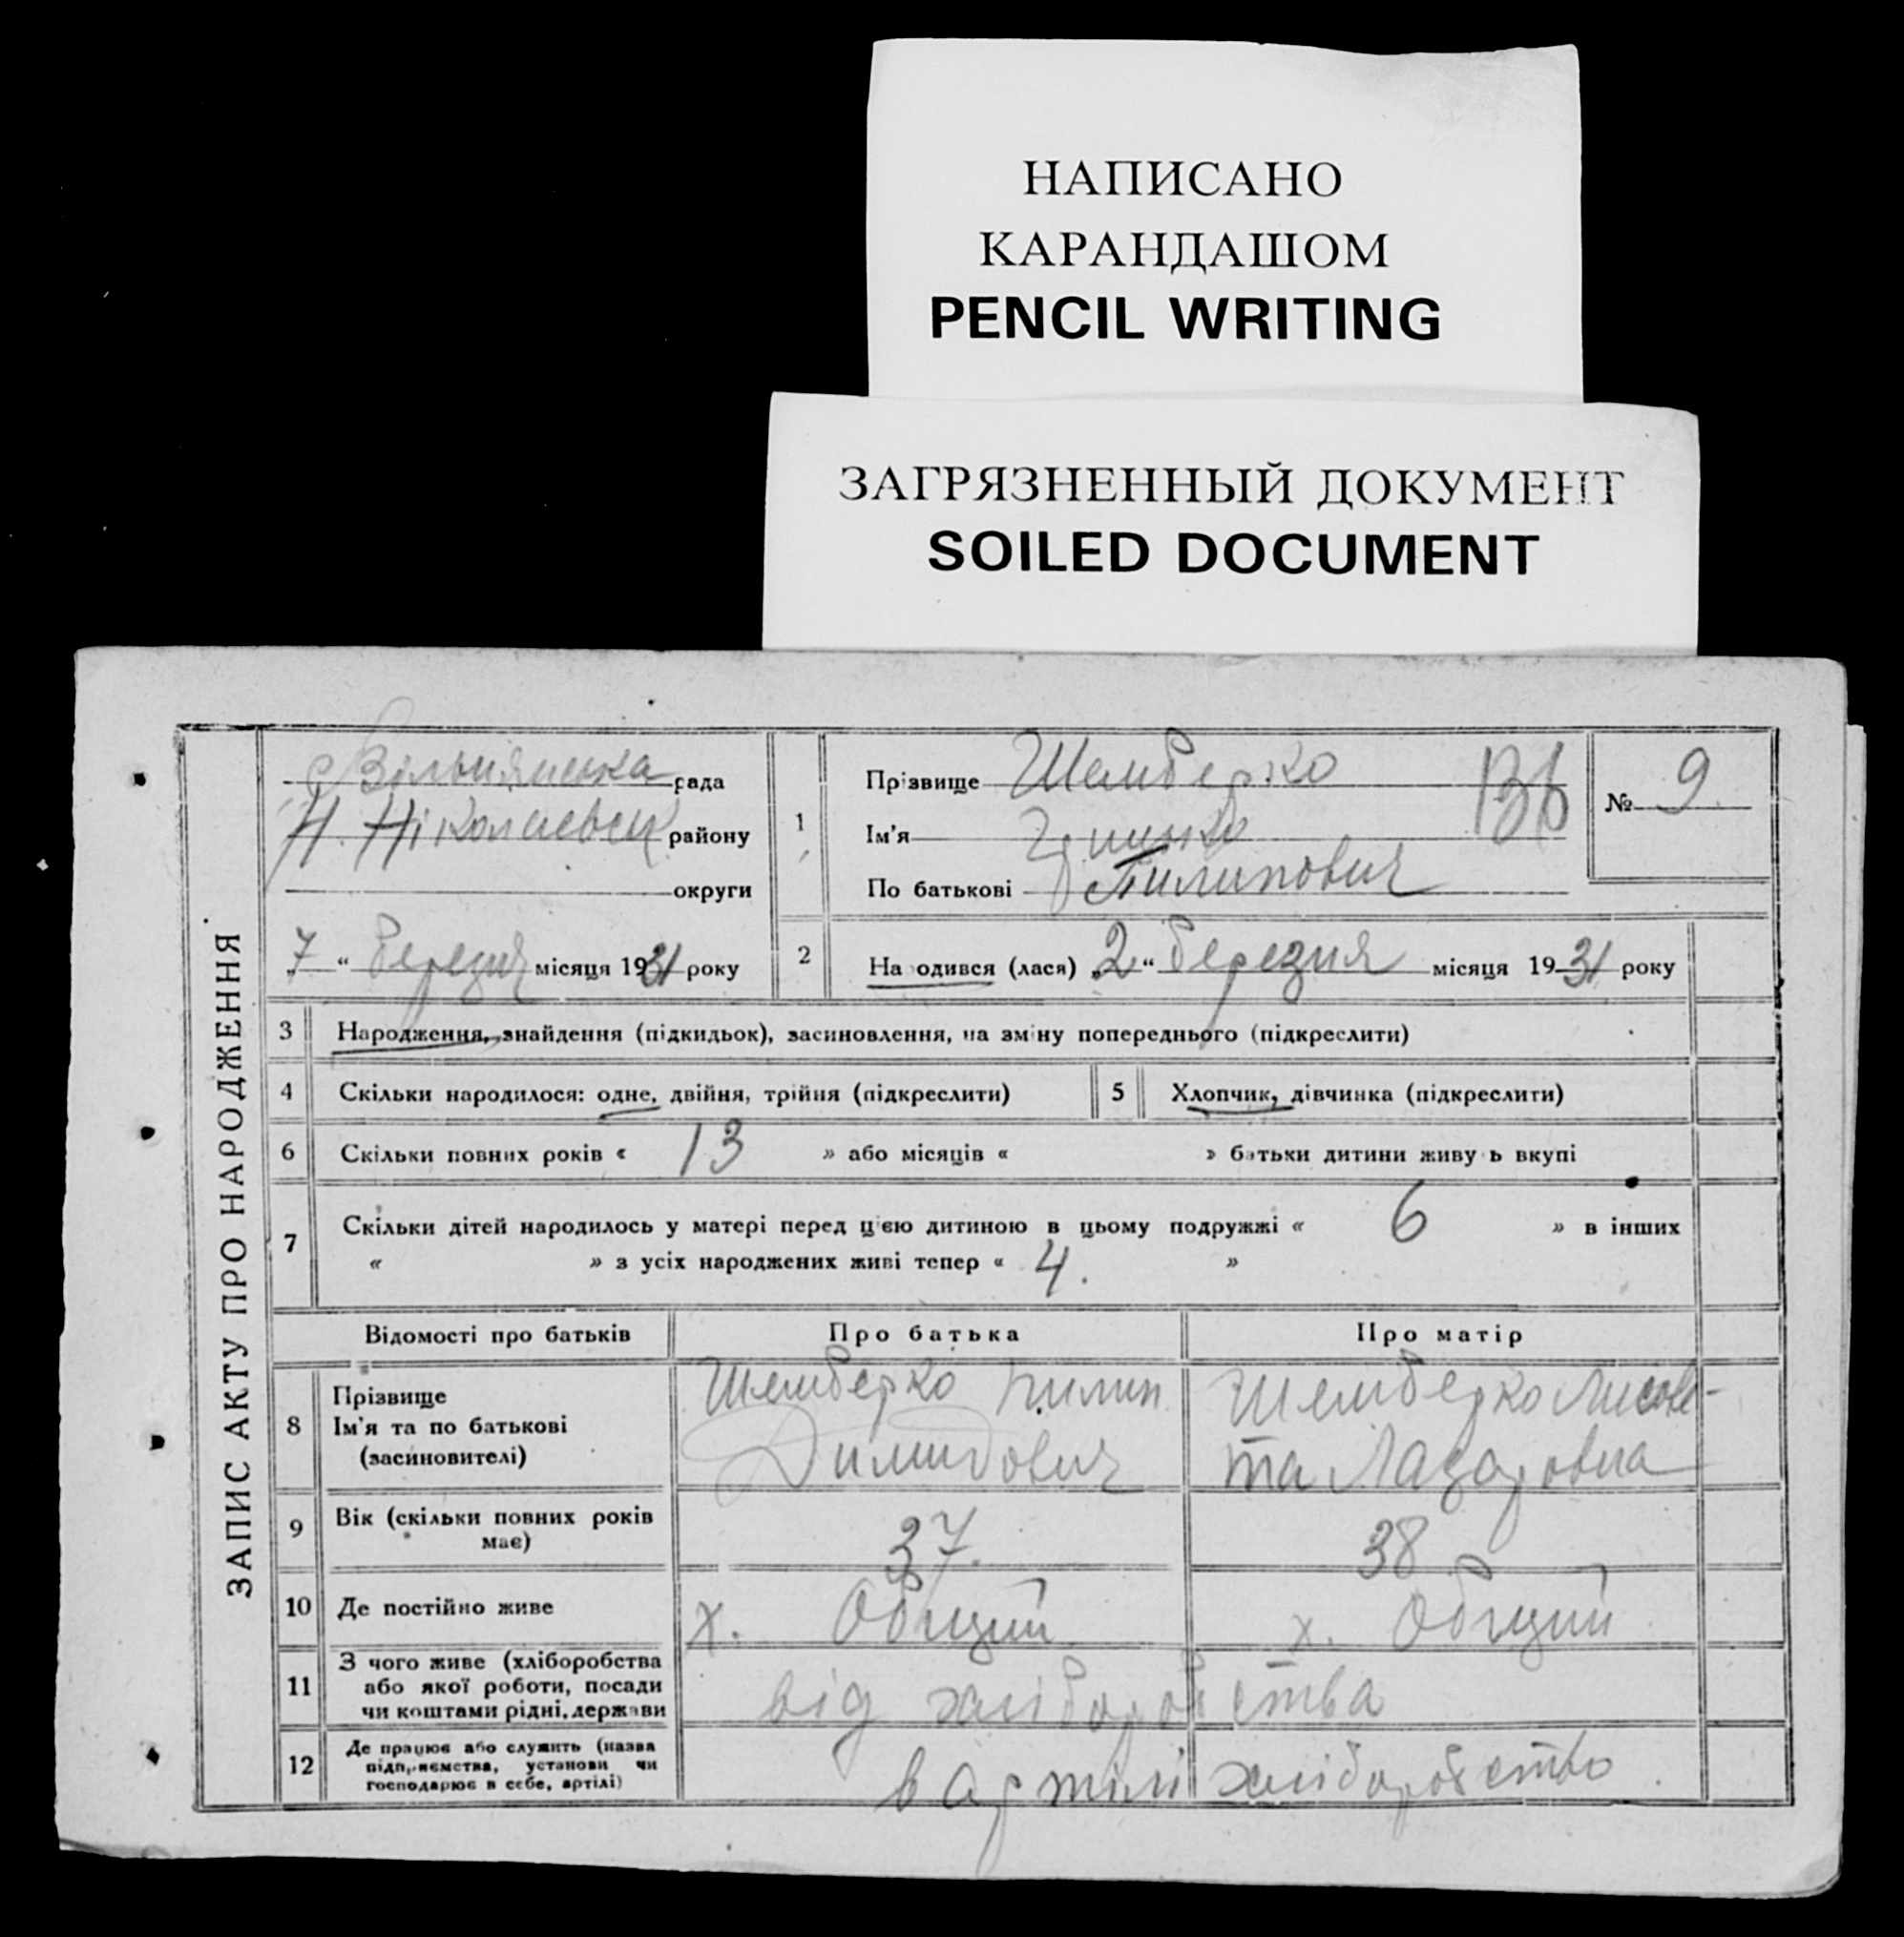 НАПИСАНО
КАРАНДАШОМ
PENCIL WRITING
ЗАГРЯЗНЕННЫЙ ДОКУМЕНТ
SOILED DOCUMENT
ЗАПИС АКТУ ПРО НАРОДЖЕННЯ
рада
Н. Ніколаевськ району
округи
„7“ березня місяця 1931 року
1
Прізвище Шемберко
Ім'я Грицько
По батькові Пилипович
136
№ 9.
2
Народився (лася) „2“ березня місяця 1931 року
3 Народження, знайдення (підкидьок), засиновлення, на зміну попереднього (підкреслити)
4 Скільки народилося: одне, двійня, трійня (підкреслити) 5 Хлопчик, дівчинка (підкреслити)
6 Скільки повних років « 13 » або місяців « » батьки дитини живуть вкупі
7 Скільки дітей народилось у матері перед цією дитиною в цьому подружжі « 6 » в інших
« » з усіх народжених живі тепер « 4. »
Відомості про батьків Про батька Про матір
8 Прізвище
Ім'я та по батькові
(засиновителі)
Шемберко Пилип
Димидович
Шемберко Лисове-
та Лазаровна
9 Вік (скільки повних років
має)
37. 38
10 Де постійно живе х. Общий х. Общий
11 З чого живе (хліборобства
або якої роботи, посади
чи коштами рідні, держави
від хліборобства
12 Де працює або служить (назва
підприємства, установи чи
господарює в себе, артілі)
в артілі хліборобство